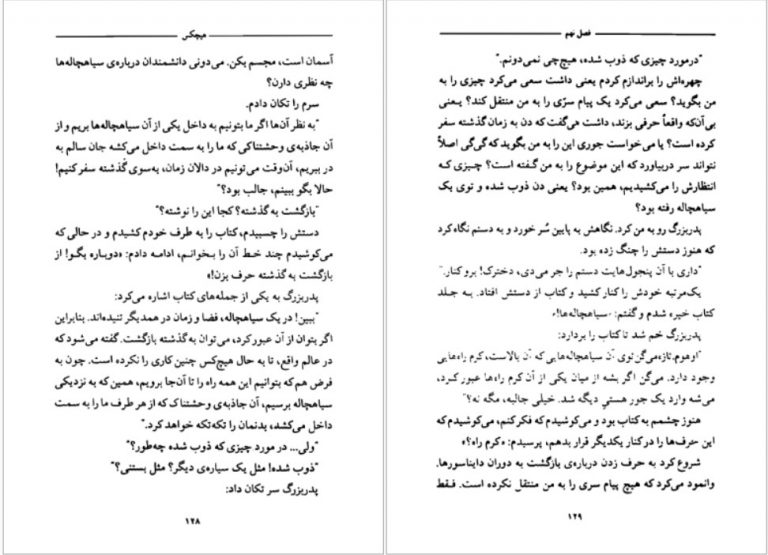 هیچکس
آسمان است، مجسم بکن. می‌دونی دانشمندان درباره‌ی سیاهچاله‌ها
چه نظری دارن؟
سرم را تکان دادم.
"به نظر آن‌ها اگر ما بتونیم به داخل یکی از آن سیاهچاله‌ها بریم و از
آن جاذبه‌ی وحشتناکی که ما را به سمت داخل می‌کشه جان سالم به
در ببریم، آن‌وقت می‌تونیم در دالان زمان، به‌سوی گذشته سفر کنیم!
حالا بگو ببینم، جالب بود؟"
"بازگشت به گذشته؟ کجا این را نوشته؟"
دستش را چسبیدم، کتاب را به طرف خودم کشیدم و در حالی که
می‌کوشیدم چند خط آن را بخوانم، ادامه دادم: «دوباره بگو! از
بازگشت به گذشته حرف بزن!»
پدربزرگ به یکی از جمله‌های کتاب اشاره می‌کرد:
"ببین! در یک سیاهچاله، فضا و زمان در همدیگر تنیده‌اند. بنابراین
اگر بتوان از آن عبور کرد، می‌توان به گذشته بازگشت. گفته می‌شود که
در عالم واقع، تا به حال هیچ‌کس چنین کاری را نکرده است. چون به
فرض هم که بتوانیم این همه راه را تا آن‌جا برویم، همین که به نزدیکی
سیاهچاله برسیم، آن جاذبه‌ی وحشتناک که از هر طرف ما را به سمت
داخل می‌کشد، بدنمان را تکه‌تکه خواهد کرد."
"ولی... در مورد چیزی که ذوب شده چه‌طور؟"
"ذوب شده! مثل یک سیاره‌ی دیگر؟ مثل بستنی؟"
پدربزرگ سر تکان داد:
۱۲۸
فصل نهم
"درمورد چیزی که ذوب شده، هیچ‌چی نمی‌دونم."
چهره‌اش را براندازم کردم یعنی داشت سعی می‌کرد چیزی را به
من بگوید؟ سعی می‌کرد یک پیام سرّی را به من منتقل کند؟ یعنی
بی‌آن‌که واقعاً حرفی بزند، داشت هی‌گفت که دن به زمان گذشته سفر
کرده است؟ یا می‌خواست جوری این را به من بگوید که گی‌گی اصلاً
نتواند سر دربیاورد که این موضوع را به من گفته است؟ چیزی که
انتظارش را می‌کشیدیم، همین بود؟ یعنی دن ذوب شده و توی یک
سیاهچاله رفته بود؟
پدربزرگ رو به من کرد. نگاهش به پایین سُر خورد و به دستم نگاه کرد
که هنوز دستش را چنگ زده بود.
"داری با آن پنجول‌هایت دستم را جر می‌دی، دخترک! برو کنار."
یک‌مرتبه خودش را کنار کشید و کتاب از دستش افتاد. به جلد
کتاب خیره شدم و گفتم: «سیاهچاله‌ها!»
پدربزرگ خم شد تا کتاب را بردارد:
"اوهوم. تازه می‌گن توی آن سیاهچاله‌هایی که آن بالاست، کرم راه‌هایی
وجود دارد. می‌گن اگر بشه از میان یکی از آن کرم راه‌ها عبور کرد،
می‌شه وارد یک جور هستیِ دیگه شد. خیلی جالبه، مگه نه؟"
هنوز چشمم به کتاب بود و می‌کوشیدم که فکر کنم، می‌کوشیدم که
این حرف‌ها را در کنار یکدیگر قرار بدهم، پرسیدم: «کرم راه؟»
شروع کرد به حرف زدن درباره‌ی بازگشت به دوران دایناسورها.
وانمود می‌کرد که هیچ پیام سری را به من منتقل نکرده است. فقط
۱۲۹